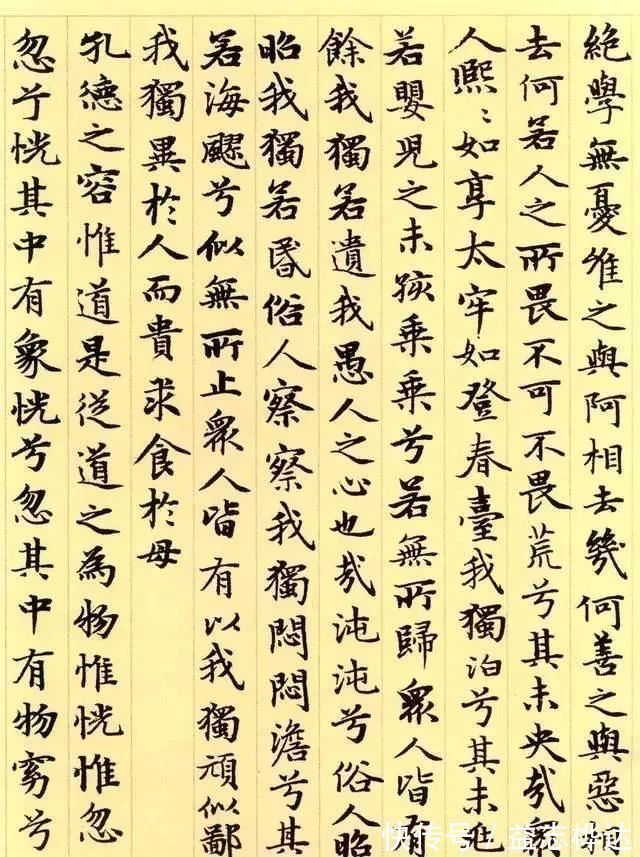 絕學無憂唯之與阿相去幾何善之與惡
去何若人之所畏不可不畏荒兮其未央哉衆
人熙〻如享太牢如登春臺我獨泊兮其未兆
若嬰兒之未孩乘乘兮若無所歸衆人皆有
餘我獨若遺我愚人之心也哉沌沌兮俗人昭
昭我獨若昏俗人察察我獨悶悶澹兮其
若海飂兮似無所止衆人皆有以我獨頑似鄙
我獨異於人而貴求食於母
孔德之容惟道是從道之為物惟恍惟忽
忽兮恍其中有象恍兮忽其中有物窈兮
快传号/益志桦达